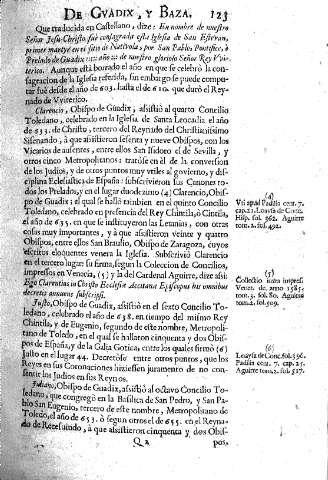 DE GVADIX, Y BAZA. 123
Que traducida en Castellano, dize: En nombre de nuestro
Señor Jesu-Christo fuè consagrada esta Iglesia de San Estevan,
primer martyr en el sitio de Nativola, por San Pablo, Pontifice, ò
Prelado de Guadix año 22. de nuestro glorioso Señor Rey Vvi-
terico. Aunque està borrado el año en que se celebrò la con-
sagracion de la Iglesia referida, sin embargo se puede compu-
tar fuè desde el año de 603. hasta el de 610. que durò el Rey-
nado de Vviterico.
Clarencio, Obispo de Guadix, assistiò al quarto Concilio
Toledano, celebrado en la Iglesia de Santa Leocadia el año
de 633. de Christo, tercero del Reynado del Christianissimo
Sisenando, à que assistieron sesenta y nueve Obispos, con los
Vicarios de ausentes, entre ellos San Isidoro el de Sevilla, y
otros cinco Metropolitanos: tratòse en èl de la conversion
de los Judios, y de otros puntos muy utiles al govierno, y dis-
ciplina Eclesiastica de España: subscrivieron sus Canones to-
dos los Prelados, y en el lugar duodezimo (4) Clarencio, Obis-
po de Guadix; el qual se hallò tambien en el quinto Concilio
Toledano, celebrado en presencia del Rey Chintila, ò Cintila,
el año de 635. en que se instituyeron las Letanias, con otras
cosas muy importantes, y à que assistieron veinte y quatro
Obispos, entre ellos San Braulio, Obispo de Zaragoza, cuyos
escritos eloquentes venera la Iglesia. Subscriviò Clarencio
en el tercero lugar su firma, segun la Coleccion de Concilios,
impressos en Venecia, (5) y la del Cardenal Aguirre, dize assi:
Ego Clarentius in Christo Ecclesiæ Accitanæ Episcopus his omnibus
decretis annuens subscripsi.
Justo, Obispo de Guadix, assistiò en el sexto Concilio To-
ledano, celebrado el año de 638. en tiempo del mismo Rey
Chintila, y de Eugenio, segundo de este nombre, Metropoli-
tano de Toledo, en el qual se hallaron cinquenta y dos Obis-
pos de España, y de la Galia Gotica, entre los quales firmò (6)
Justo en el lugar 44. Decretòse entre otros puntos, que los
Reyes en sus Coronaciones hiziessen juramento de no con-
sentir los Judios en sus Reynos.
Juliano, Obispo de Guadix, assistiò al octavo Concilio To-
ledano, que congregò en la Basilica de San Pedro, y San Pa-
blo San Eugenio, tercero de este nombre, Metropolitano de
Toledo, el año de 653. ò segun otros el de 655. en el Reyna-
do de Recesuindo, à que assistieron cinquenta y dos Obis-
Q 2 pos,
(4)
Vis apud Padilla cent. 7.
cap. 21. Loaysa de Conc.
Hisp. fol. 362. Aguirre
tom. 2. fol. 492.
(5)
Collectio nova impres.
Venet. de anno 1585.
tom. 3. fol. 80. Aguirre
tom. 2. fol. 509.
(6)
Loaysa de Conc. fol. 396.
Padilla cent. 7. cap. 25.
Aguirre tom. 2. fol. 517.